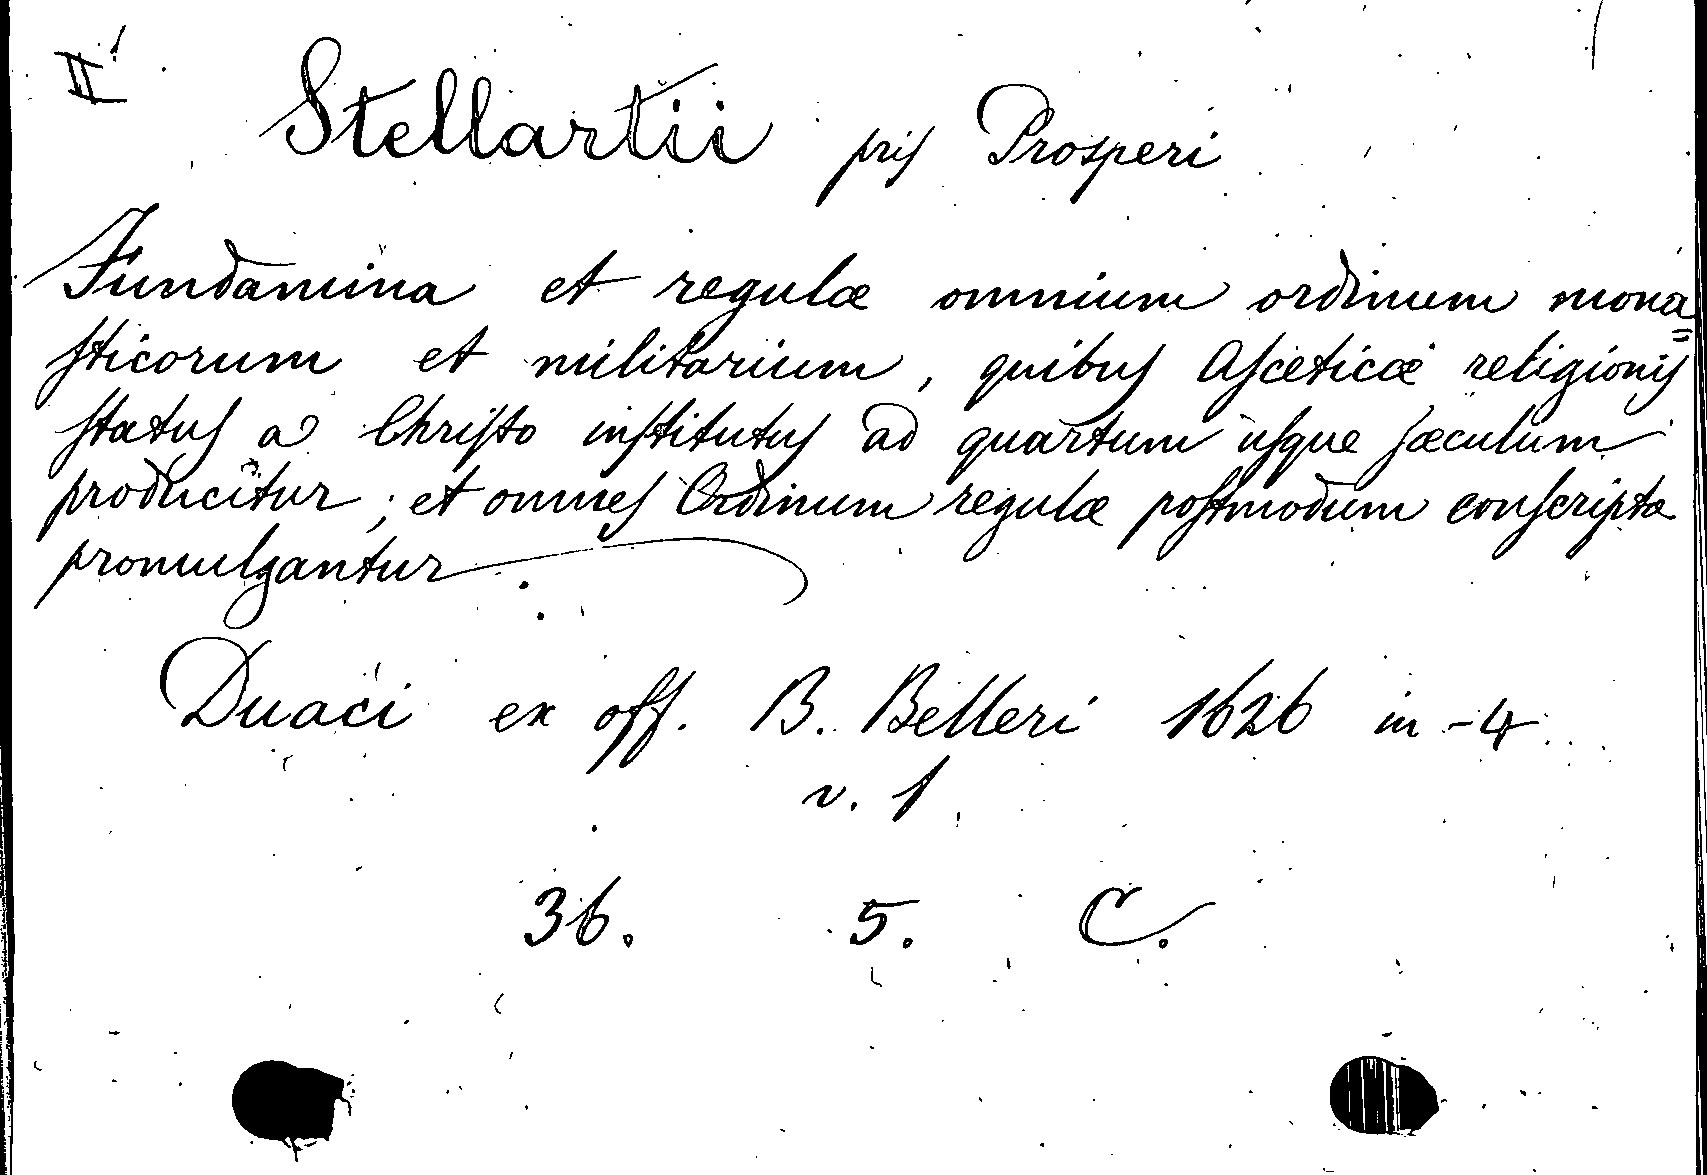 II
Stellartii pris Prosperi
Fundamina et regulæ omnium ordinum mona=
sticorum et militarium, quibus Asceticæ religionis
status a Christo institutus ad quartum usque sæculum
producitur; et omnes Ordinum regulæ postmodum conscriptæ
promulgantur.
Duaci ex off. B. Belleri 1626 in-4
v. 1
36. 5. C.